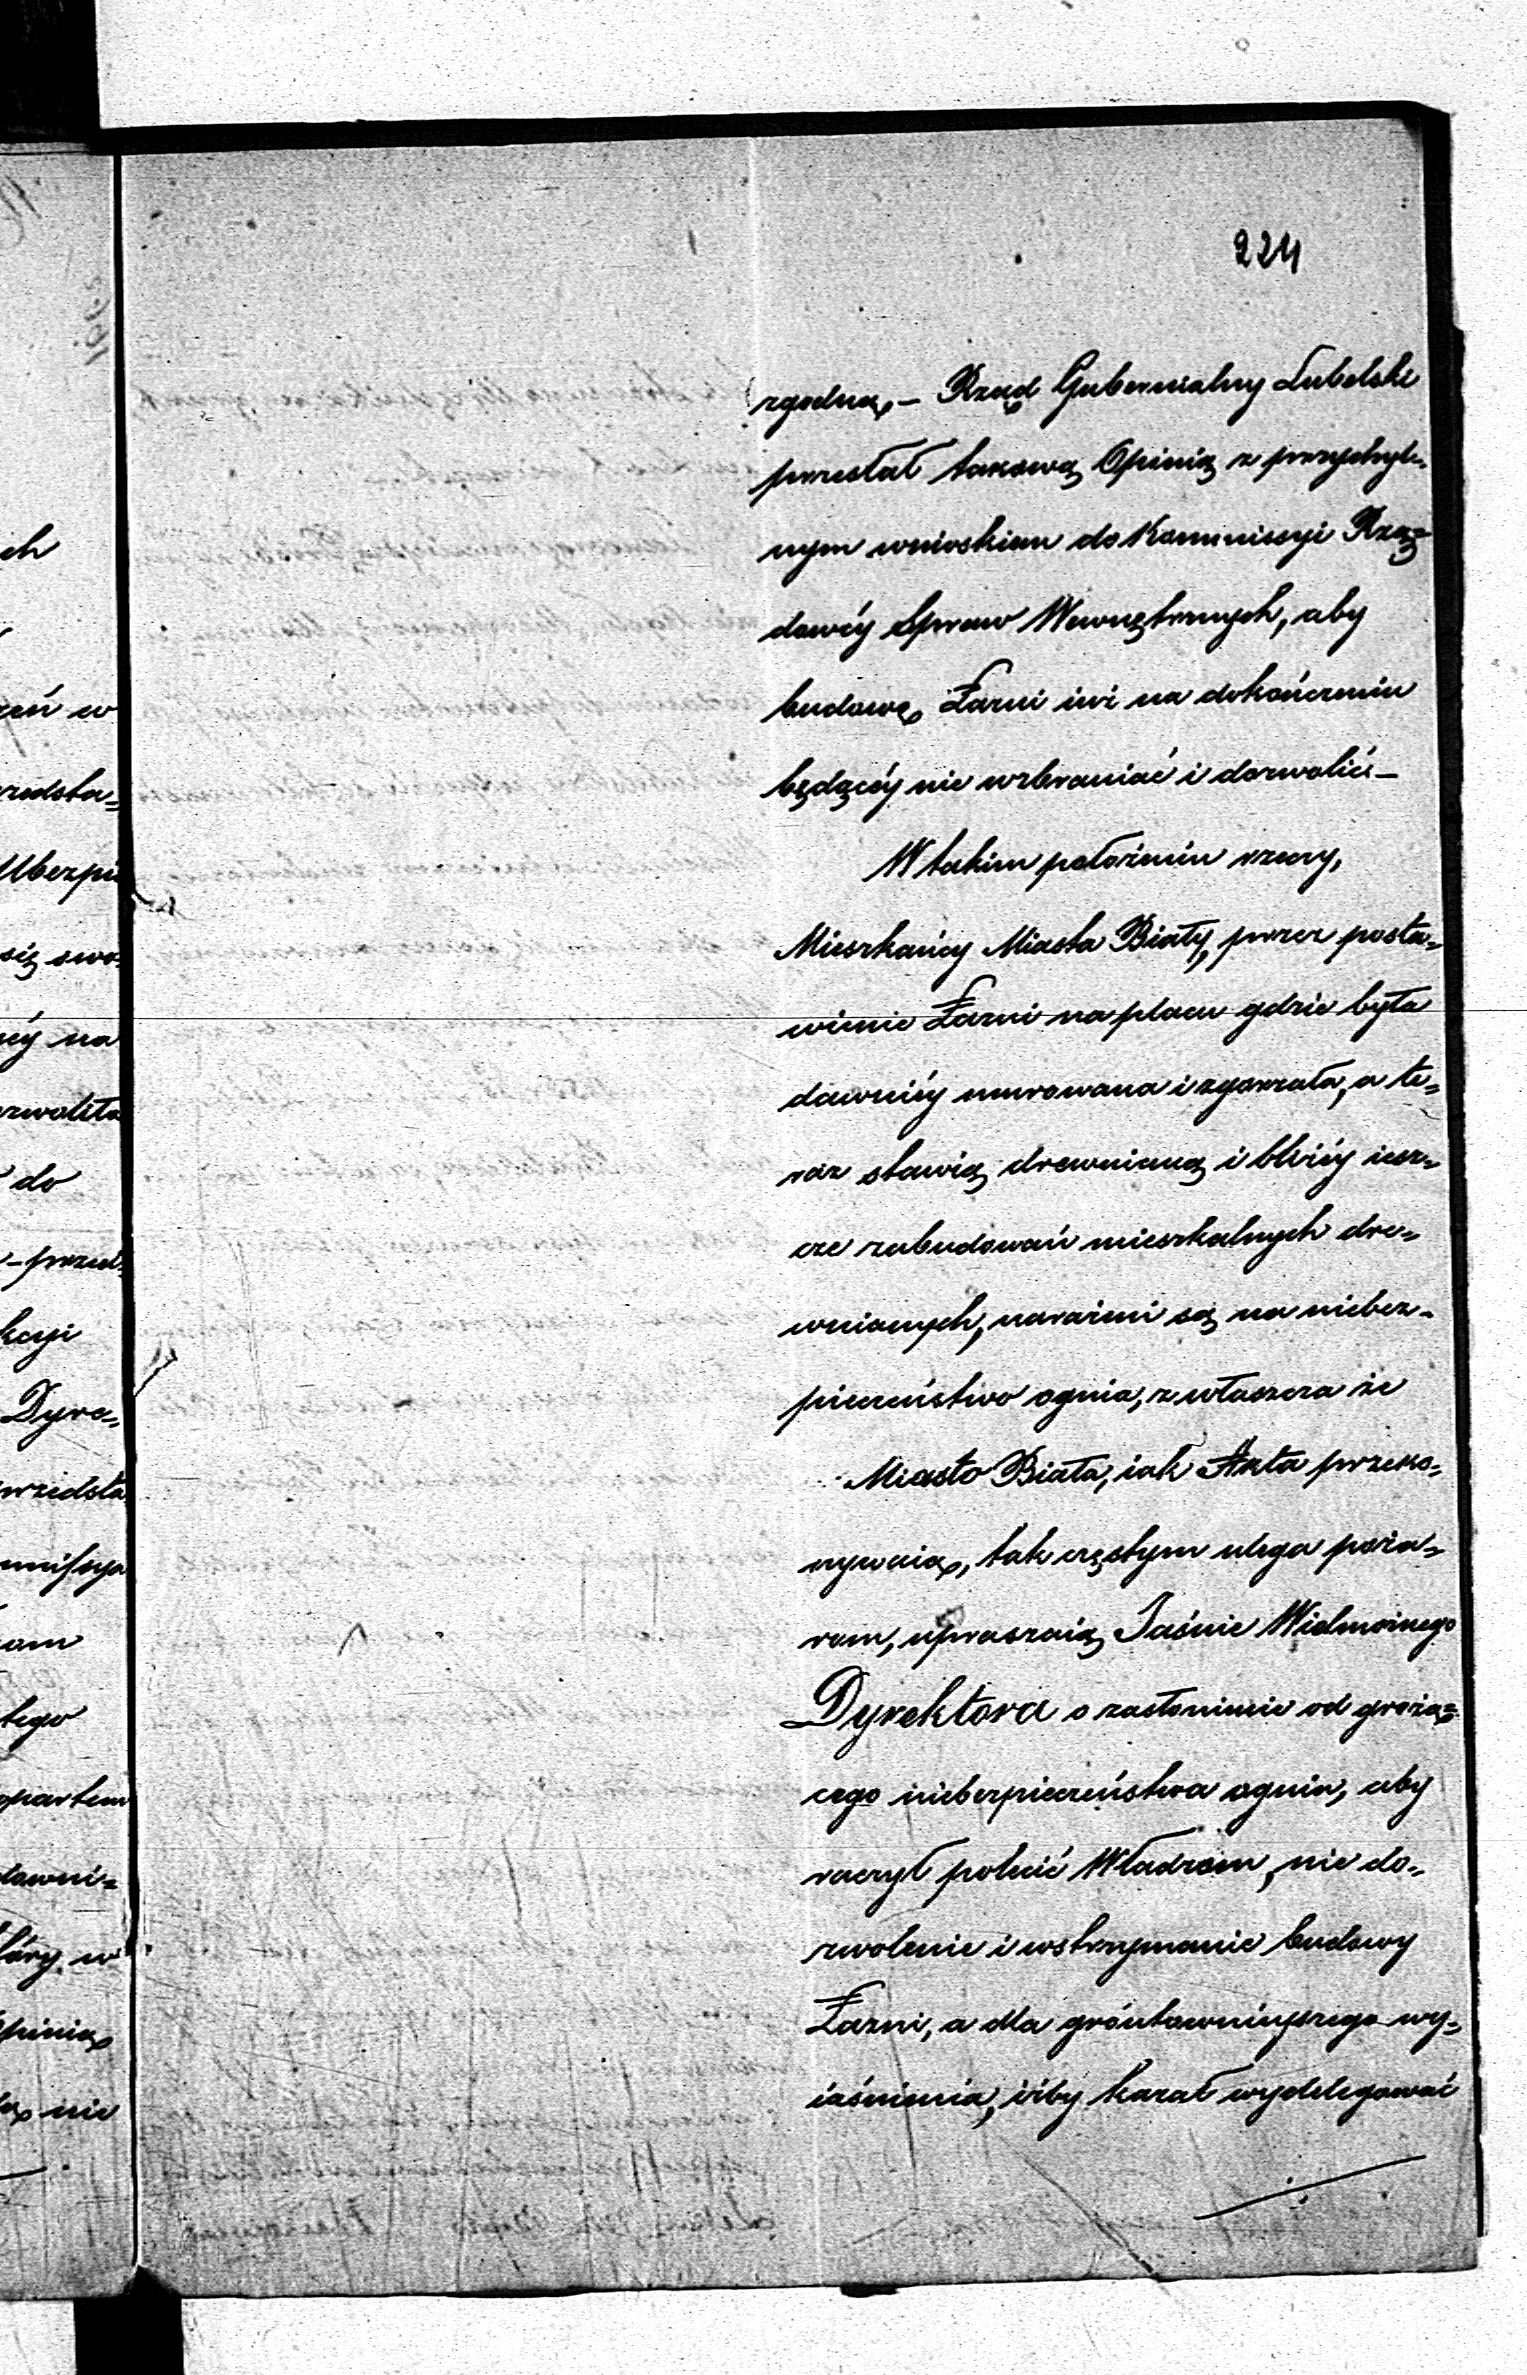 224
zgodną, – Rząd Gubernialny Lubelski
przesłał takową Opinię z przychyl-
nym wnioskiem do Kommissyi Rzą=
dowéy Spraw Wewnętrznych, aby
budowę Łazni iuż na dokończeniu
będącéy nie wzbraniać i dozwolić –
W takim położeniu rzeczy,
Mieszkańcy Miasta Biały, przez posta„
wienie Łazni na placu gdzie była
dawniéy murowana i zgorzała, a te„
raz stawią drewnianą i bliżéy iesz„
cze zabudowań mieszkalnych dre„
wnianych, narażeni są na niebez-
pieczeństwo ognia, zwłaszcza że
Miasto Biała, iak Akta przeko„
nywaią, tak częstym ulega poża„
rom, upraszaią Jaśnie Wielmożnego
Dyrektora o zasłonienie od grożą=
cego niebezpieczeństwa ognia, aby
raczył polecić Władzom, nie do„
zwolenie i wstrzymanie budowy
Łazni, a dla gróntownieyszego wy„
iaśnienia, iżby kazał wydelegować
ch
zeń w
zedsta=
Ubezpie
się swo
éy na
zwoliła
do
kcyi
Dyre„
przedsta
missya
tego
opartem
downi=
tóry w
opinią
nie